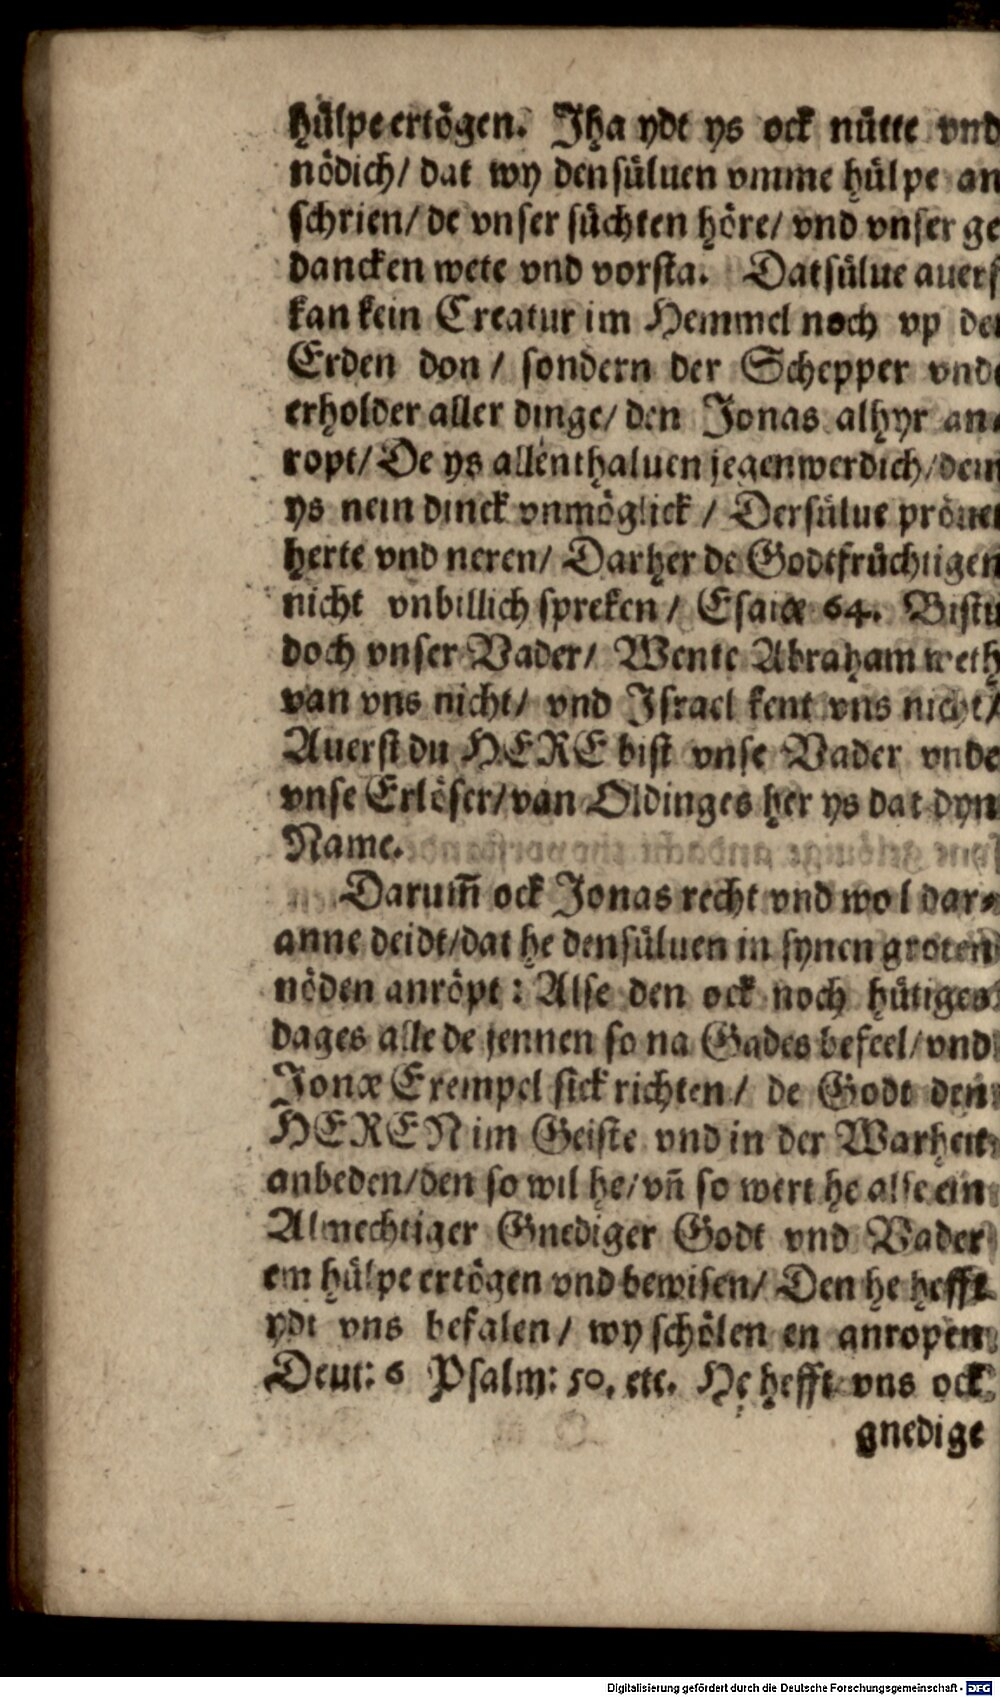 hülpe ertögen. Jha ydt ys ock nütte vnd
nödich/ dat wy densüluen vmme hülpe an
schrien/ de vnser süchten höre/ vnd vnser ge
dancken wete vnd vorsta. Datsülue auers
kan kein Creatur im Hemmel noch vp der
Erden don / sondern der Schepper vnde
erholder aller dinge/ den Jonas alhyr an-
ropt/ De ys allenthaluen jegenwerdich/ dem
ys nein dinck vnmöglick / Dersülue pröuet
herte vnd neren/ Darher de Godtfrüchtigen
nicht vnbillich spreken / Esaiæ 64. Bistu
doch vnser Vader/ Wente Abraham weth
van vns nicht/ vnd Israel kent vns nicht/
Auerst du HERE bist vnse Vader vnde
vnse Erlöser/ van Oldinges her ys dat dyn
Name.
Darum̃ ock Jonas recht vnd wol dar-
anne deidt/ dat he densüluen in synen groten
nöden anröpt : Alse den ock noch hütiges
dages alle de jennen so na Gades befeel/ vnd
Jonæ Exempel sick richten / de Godt den
HEREN im Geiste vnd in der Warheit
anbeden/ den so wil he/ vñ so wert he alse ein
Almechtiger Gnediger Godt vnd Vader
em hülpe ertögen vnd bewisen/ Den he hefft
ydt vns befalen / wy schölen en anropen
Deut: 6 Psalm: 50. etc. He hefft vns ock
gnedige
Digitalisierung gefördert durch die Deutsche Forschungsgemeinschaft - DFG